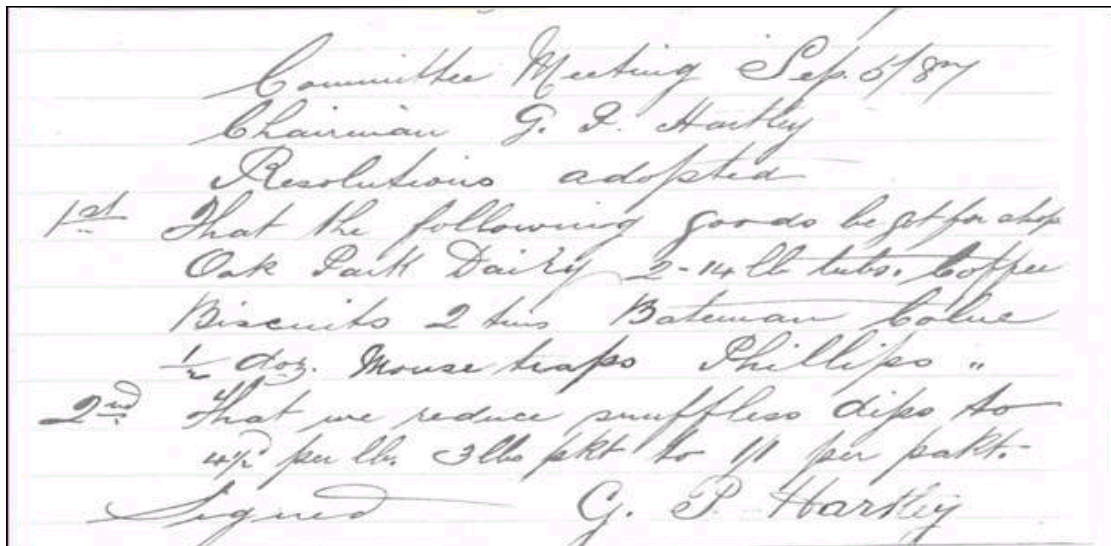 Committee Meeting Sep. 5/87
Chairman G. P. Hartley
Resolutions adopted
1st That the following goods be got for shop
Oak Park Dairy 2-14 lb tubs. Coffee
Biscuits 2 tins Bateman Colne
1/2 doz. Mouse traps Phillips "
2nd That we reduce snuffless dips to
4½ᵈ per lb. 3 lbs pkt to 1/1 per pakt.
Signed G. P. Hartley